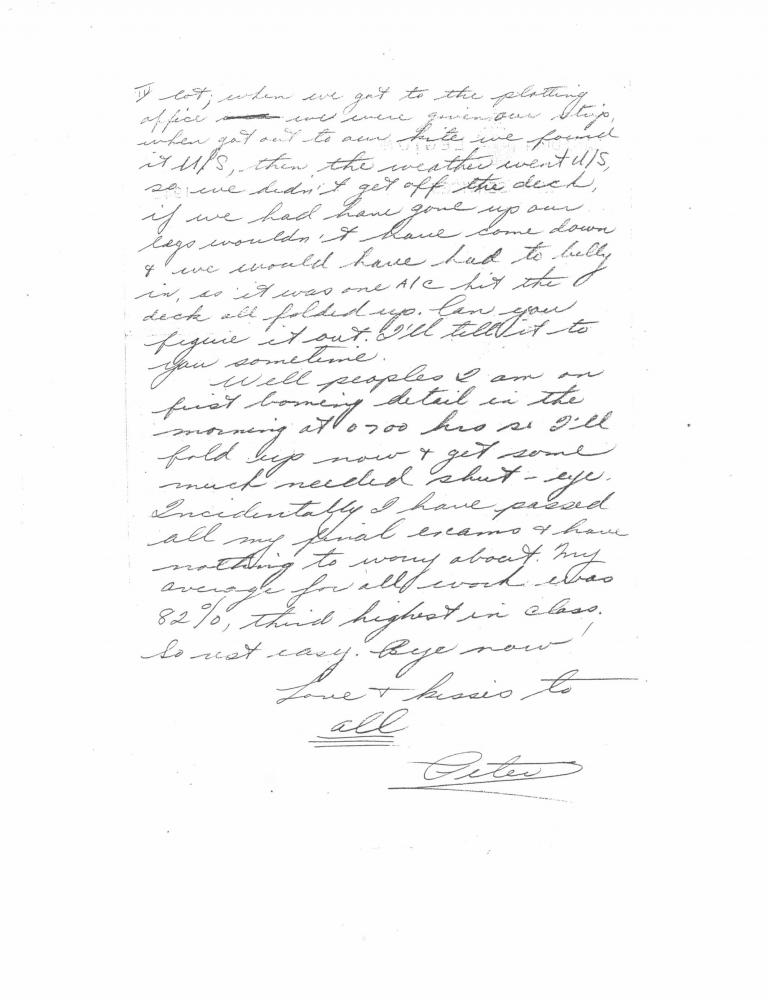 IV lot; when we got to the plotting
office we were given our trip,
when got out to our kite we found
it U/S, then the weather went U/S,
so we didn't get off the deck,
if we had have gone up our
legs wouldn't have come down
& we would have had to belly
in, as it was one A/C hit the
deck all folded up. Can you
figure it out. I'll tell it to
you sometime.
Well peoples I am on
first boming detail in the
morning at 0700 hrs so I'll
fold up now & get some
much needed shut-eye.
Incidentally I have passed
all my final exams & have
nothing to worry about. My
average for all work was
82%, third highest in class.
So rest easy. Bye now!
Love & kisses to
all
Peter